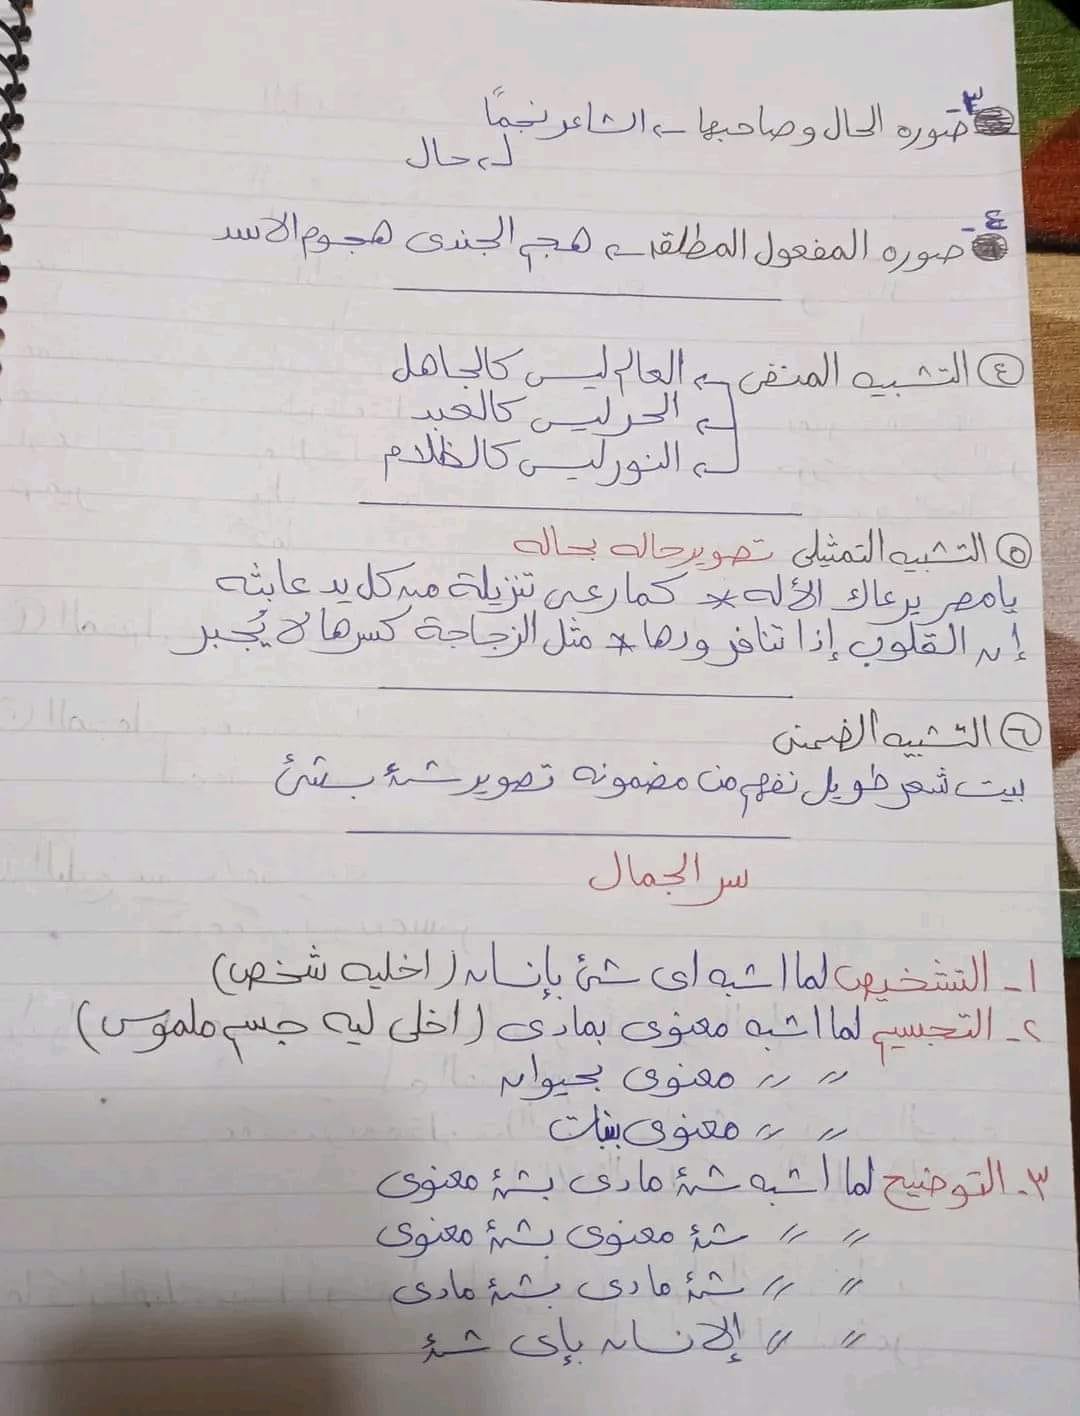 ٣- صوره الحال وصاحبها ← الشاعر نجمًا
↳ حال
٤- صوره المفعول المطلق ← هجم الجندى هجوم الاسد
④ التشبيه المنفى ← العالم ليس كالجاهل
← الحر ليس كالعبد
← النور ليس كالظلام
⑤ التشبيه التمثيلى تصوير حاله بحاله
يا مصر يرعاك الأله * كما رعى تنزيلة من كل يد عابثه
إن القلوب إذا تنافر ودها * مثل الزجاجة كسرها لا يُجبر
⑥ التشبيه الضمنى
بيت شعر طويل نفهم من مضمونه تصوير شئ بشئ
سر الجمال
١- التشخيص لما اشبه اى شئ بإنسان (اخليه شخص)
٢- التجسيم لما اشبه معنوى بمادى (اخلى ليه جسم ملموس)
〃 〃 معنوى بحيوان
〃 〃 معنوى بنبات
٣- التوضيح لما أشبه شئ مادى بشئ معنوى
〃 〃 شئ معنوى بشئ معنوى
〃 〃 شئ مادى بشئ مادى
〃 〃 الإنسان بإى شئ